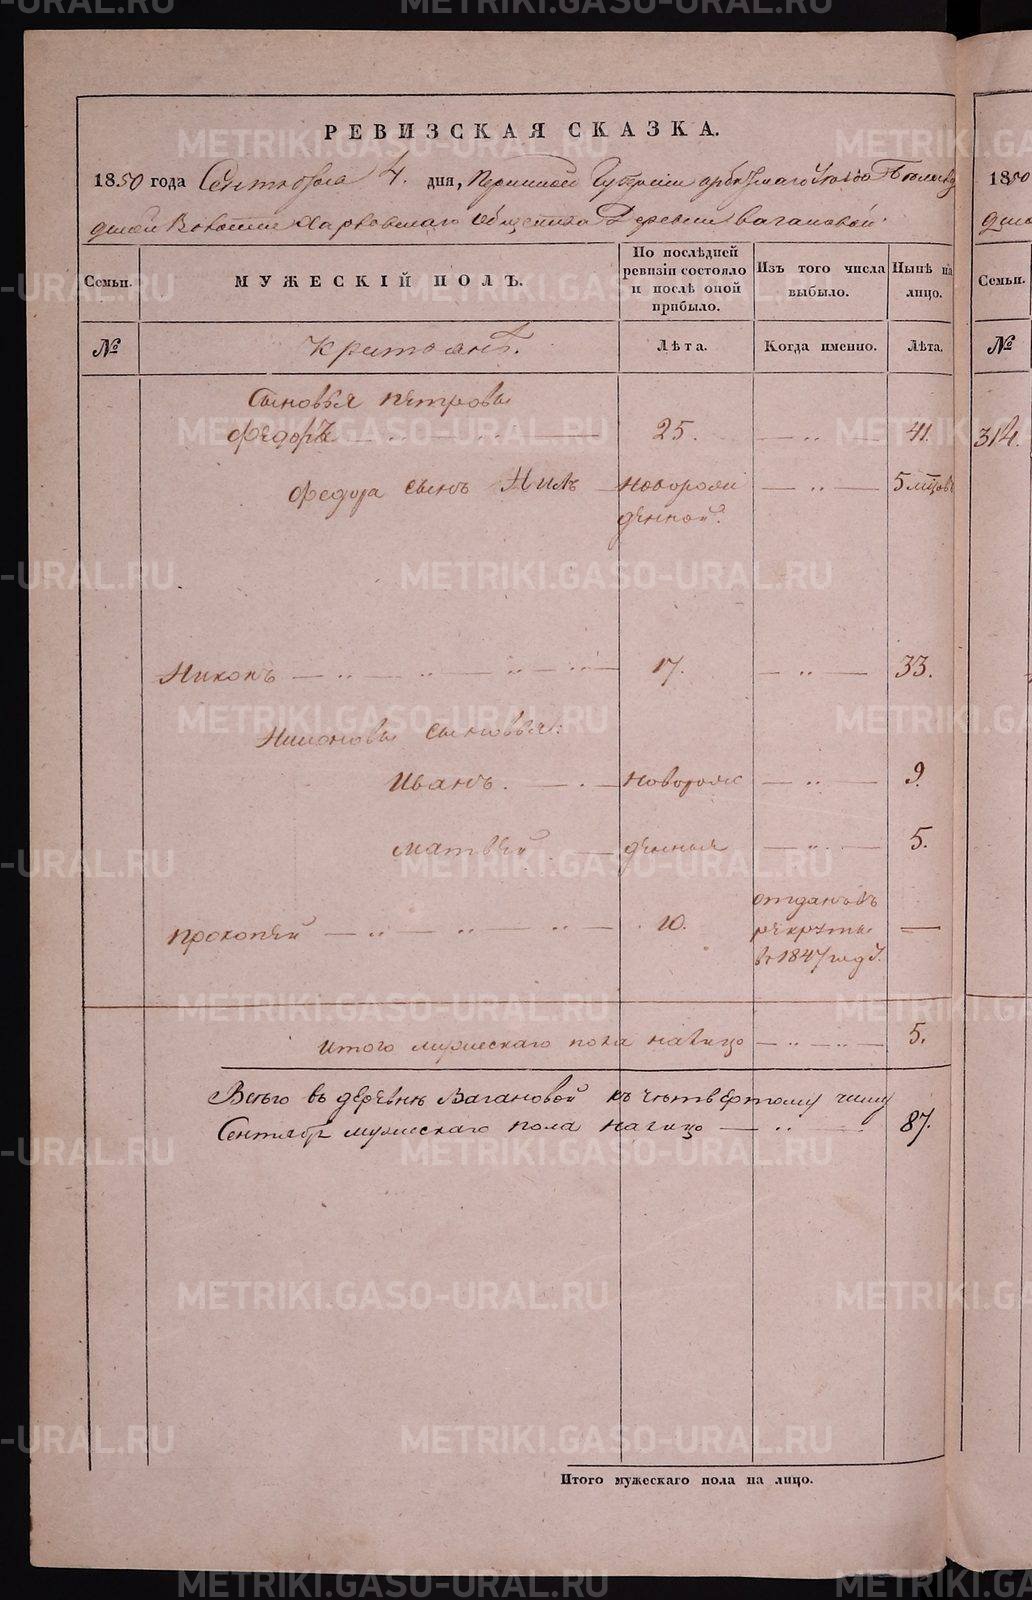 РЕВИЗСКАЯ СКАЗКА.
1850 года Сентября 4. дня, Пермской Губернии Ирбитскаго Уезда
Волости Харловскаго общества Деревни Вагановой.
Семьи.
МУЖЕСКІЙ ПОЛЪ.
По послѣдней ревизіи состояло и послѣ оной прибыло.
Изъ того числа выбыло.
Нынѣ на лицо.
Семьи.
№
Крестьянъ.
Лѣта.
Когда именно.
Лѣта.
№
Сыновья Петровы
Федоръ — 25. — 41.
314.
Федора сынъ Нилъ — новорож — 5 мцовъ
денной.
Никонъ — 17. — 33.
Никоновы сыновья:
Иванъ. — новорож — 9.
Матвѣй — денныя — 5.
Прокопей — 10. отданъ въ рекруты въ 1847 году. —
Итого мужескаго пола налицо — 5.
Всего въ деревнѣ Вагановой къ четвертому числу
Сентября мужескаго пола налицо — 87.
Итого мужескаго пола на лицо.
METRIKI.GASO-URAL.RU